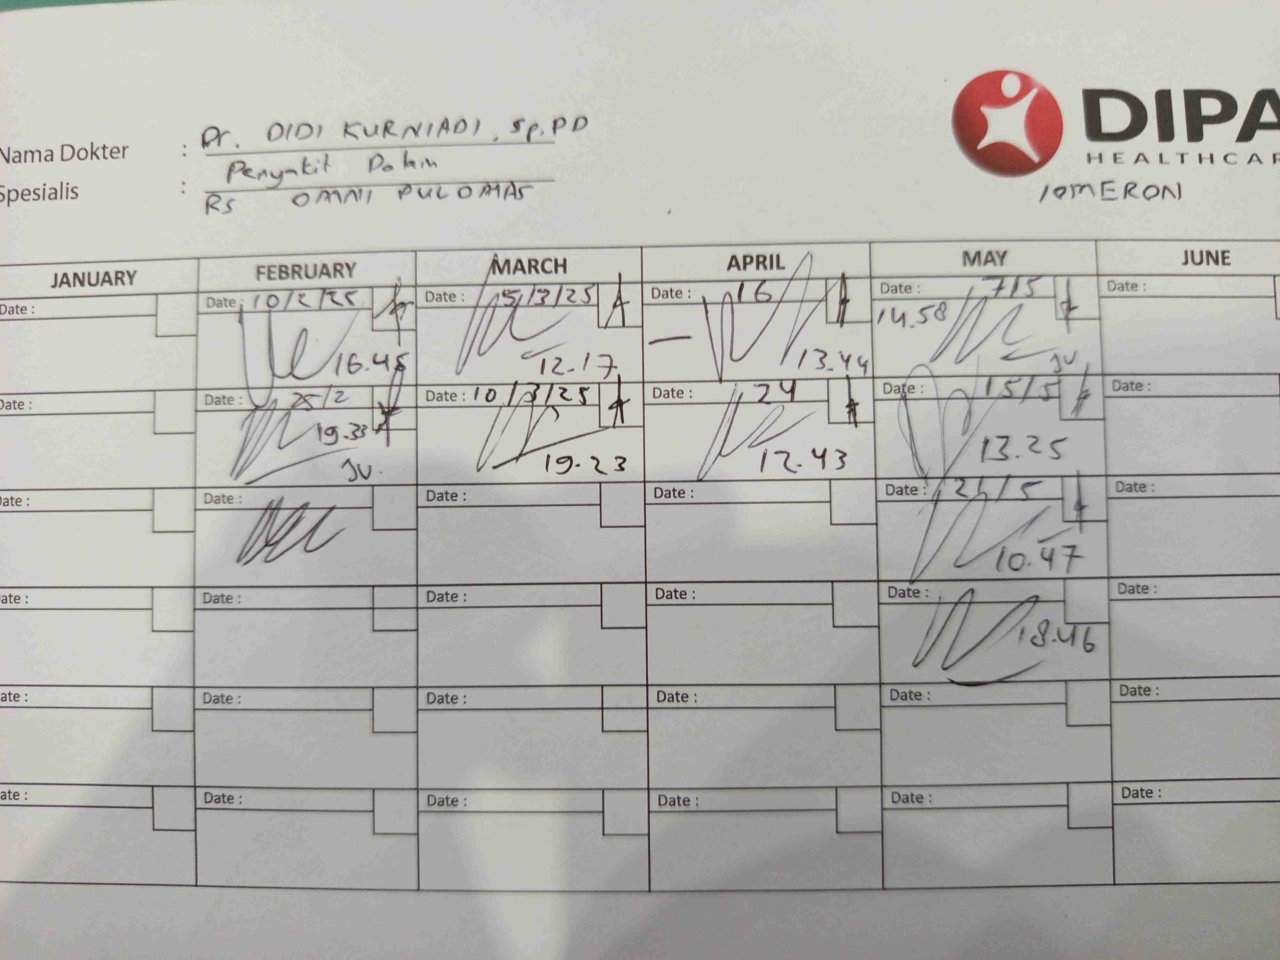 Nama Dokter : Dr. DIDI KURNIADI, Sp.PD
Spesialis : Penyakit Dalam
RS OMNI PULOMAS
DIPA
HEALTHCAR
IOMERON
JANUARY FEBRUARY MARCH APRIL MAY JUNE
Date : Date : 10/2/25 Date : 5/3/25 Date : 16 Date : 7/5 Date :
16.45 12.17 13.44 14.58 JV
Date : Date : 25/2 Date : 10/3/25 Date : 24 Date : 15/5 Date :
19.33 JV. 19.23 12.43 13.25
ate : Date : Date : Date : Date : 21/5 Date :
10.47
ate : Date : Date : Date : Date : Date :
18.46
ate : Date : Date : Date : Date : Date :
ate : Date : Date : Date : Date : Date :